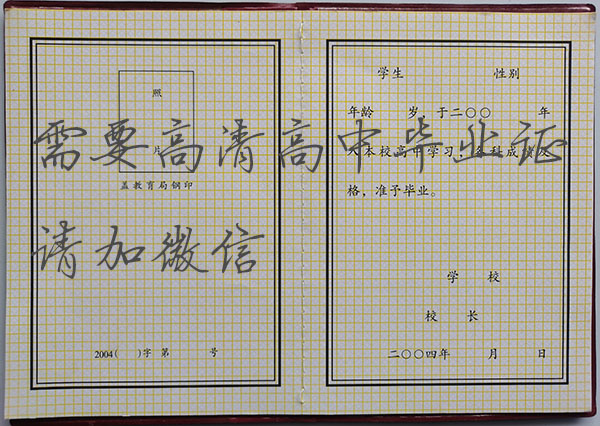 照
片
盖教育局钢印
2004( )字 第 号
学生 性别
年龄 岁 于二〇〇 年
入本校高中学习，各科成绩及
格，准予毕业。
学 校
校 长
二〇〇四年 月 日
需要高清高中毕业证
请加微信